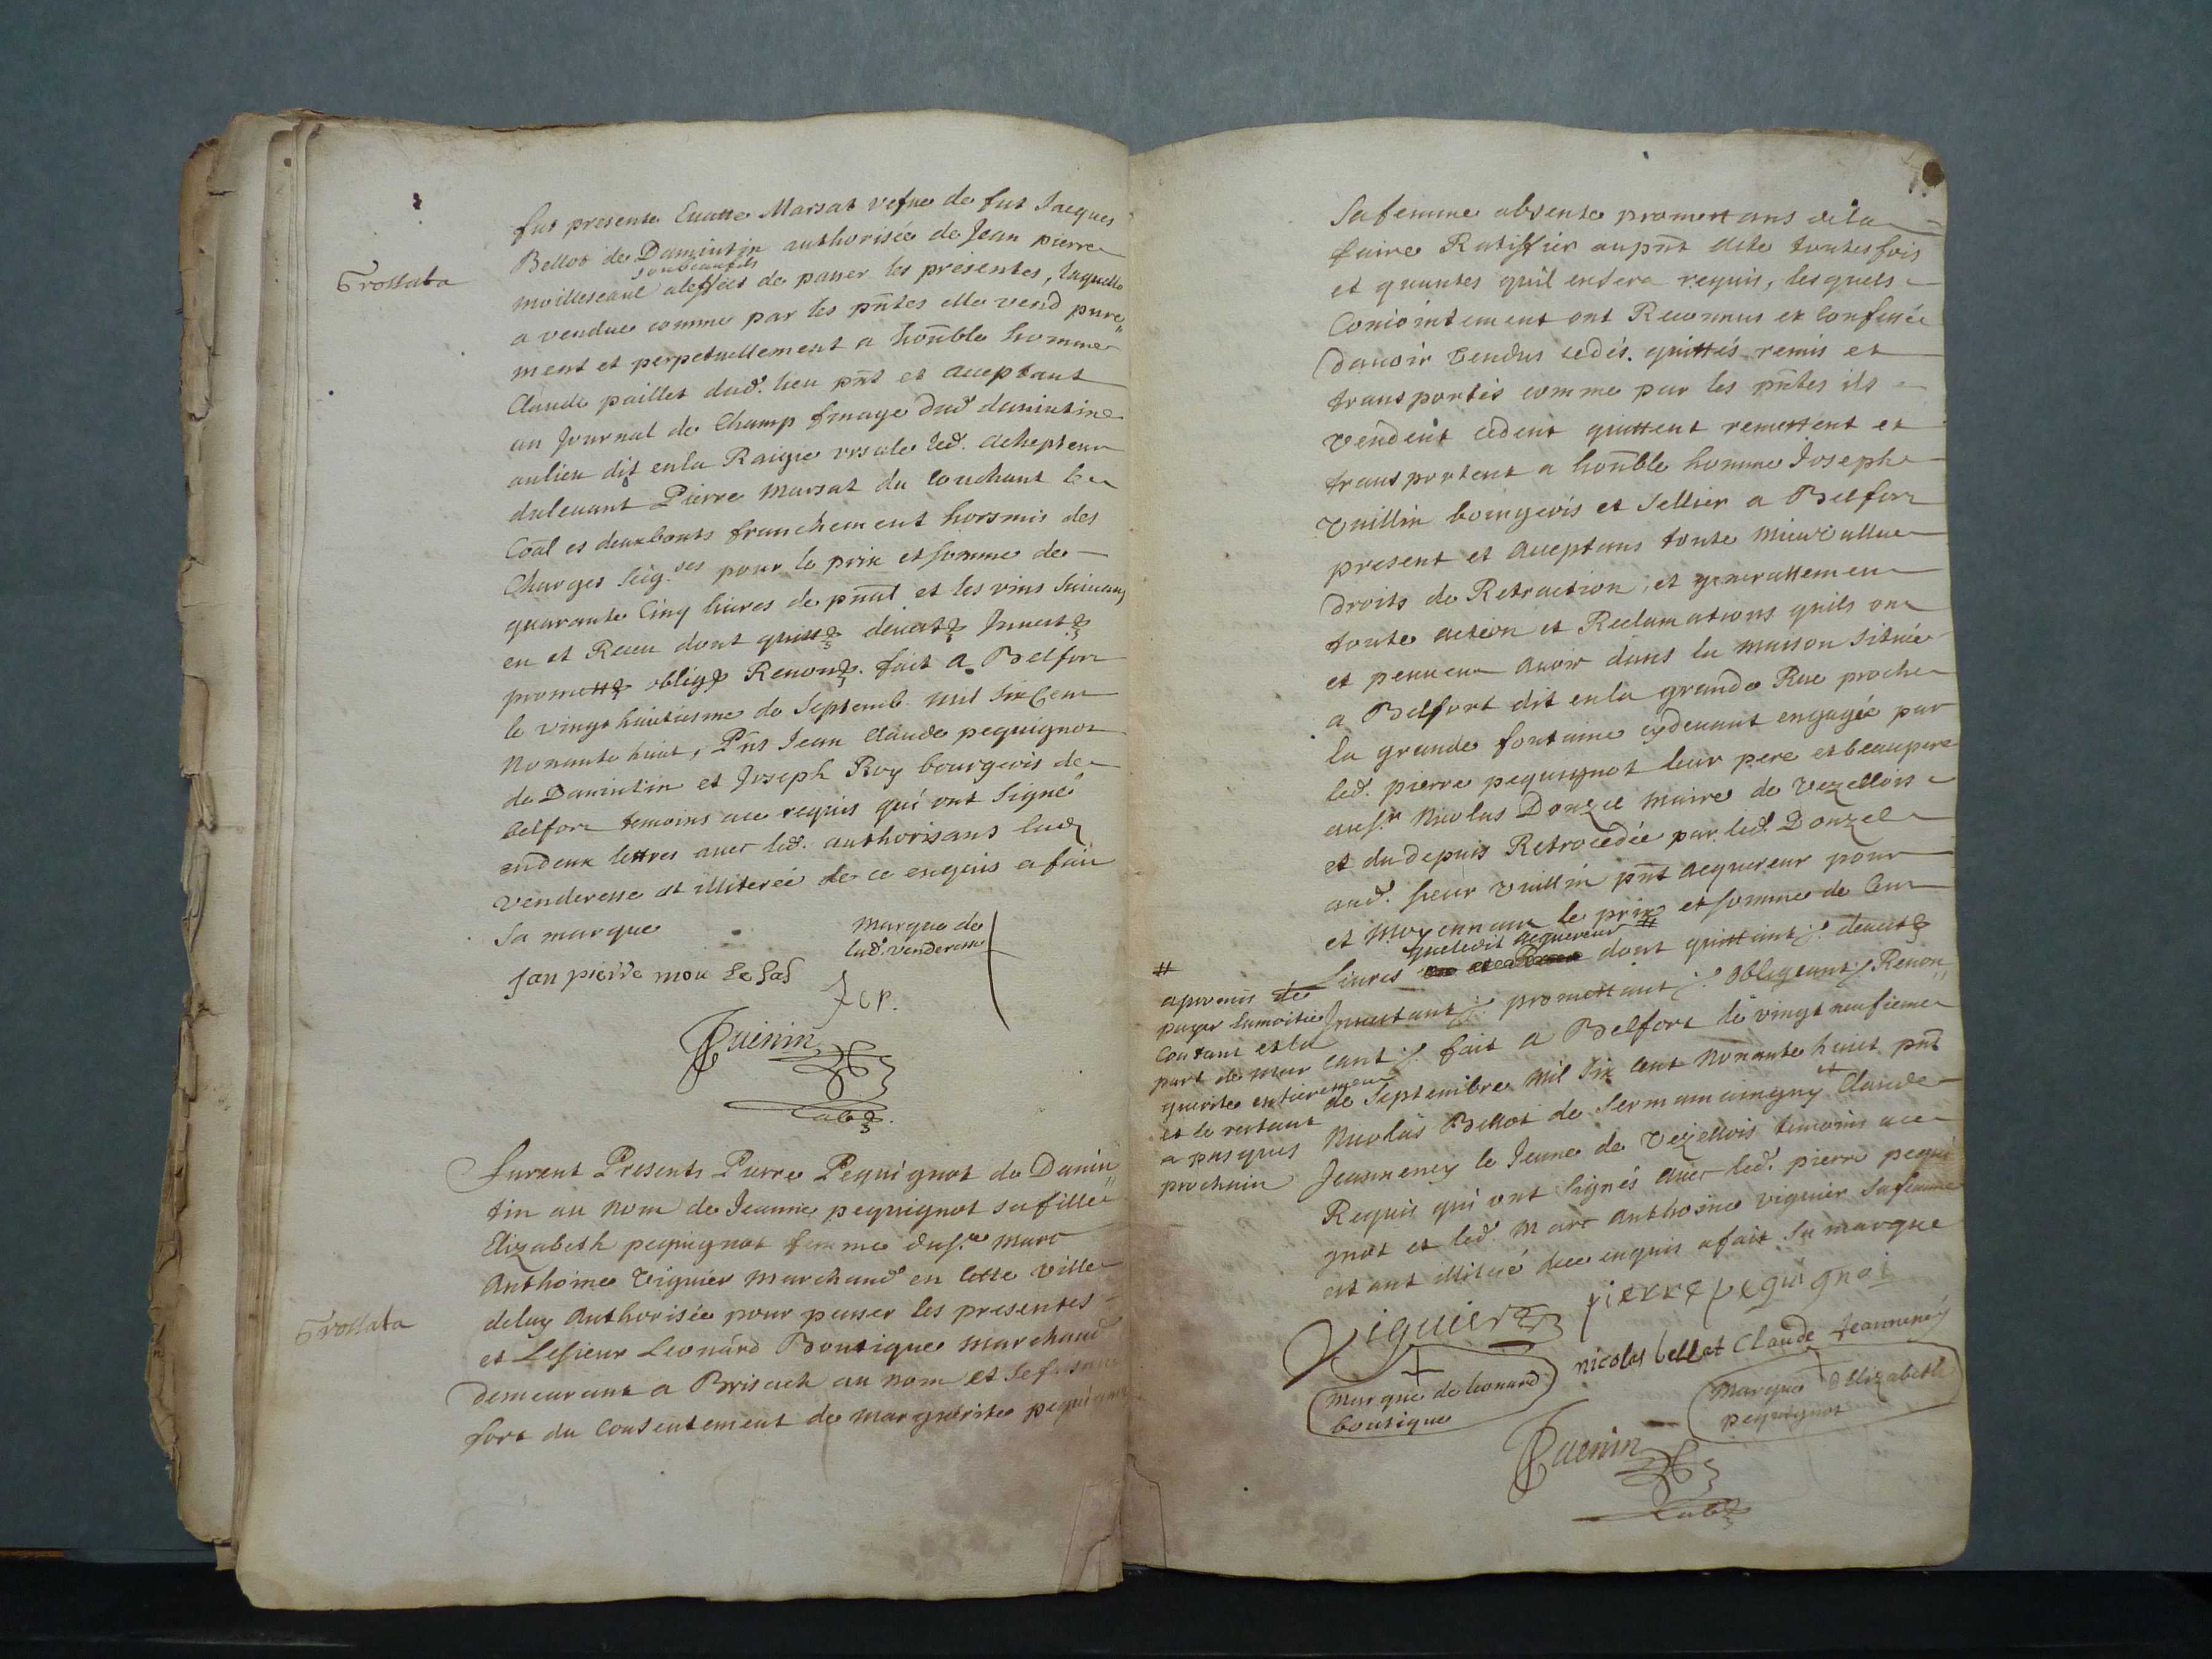 Grossata
fut presente Euatte Marsat vefue de fut Jacques
Bellot de Damintin authorisée de Jean pierre
moilleseaul son beaufils aleffect de passer les presentes, laquelle
a vendue comme par les pn̄tes elle vend pure
ment et perpetuellement a hon̄ble homme
Claude paillet dud. lieu pn̄t et acceptant
un Journal de Champ finage dud danintine
aulieu dit enla Raigie led. achepteur
duleuant Pierre Marsat du couchant le
Coal es deux bouts franchement horsmis des
Charges seig.les pour le prix et somme de
quarante Cinq liures de pn̄al et les vins suiuans
eu et Receu dont quitt. deuest. Inuest.
promett. oblig. Renon. fait a Belfort
le vingt huitiesme de Septemb. mil six Cent
Nonante huict, Pn̄s Jean Claude pequignot
de Danintin et Joseph Roy bourgeois de
belfort temoins ace requis qui ont signé
endeux lettres auec led. authorisans lad
venderesse est illiterée de ce enquis a fait
sa marque
marque de
lad. venderesse
Jan pierre mou se sas
JCP.
Guenin
Tab.
Grossata
Furent Presents Pierre Pequignot de Danin
tin au nom de Jeanne pequignot sa fille
Elizabeth pequignot femme du s.r Marc
Anthoine Viguier marchand en cette ville
deluy Authorisée pour passer les presentes
et Lesieur Leonard Boutique marchand
demeurant a Brisach au nom et se f.
fort du Consentement de marguerite pequignot
sa femme absente promettans de la
faire Ratiffier au pn̄t acte toutesfois
et quantes quil ensera requis, lesquels
Coniointement ont Reconnus et confessé
dauoir Vendus cedés, quittés remis et
transportés comme par les pn̄tes ils
vendent cedent quittent remettent et
transportent a hon̄ble homme Joseph
Vuillin bourgeois et Sellier a Belfort
present et acceptans toute mieuvallue
droits de Retraction, et generallement
toute action et Reclamations quils ont
et peuuent auoir dans la maison située
a Belfort dit enla grande Rue proche
la grande fontaine cydeuant engagée par
led. pierre pequignot leur pere et beaupere
aus.r Nicolas Donzel maire de Vezellois
et du depuis Retrocedée par led. Donzel
aud. sieur Vuillin pn̄t acquereur pour
et moyennant le prix et somme de Cent
Liures queledit acquereur # dont quittant deuest.
Inuestant promettant obligeant Renon
cant fait a Belfort le vingt neufieme
de Septembre mil six cent nonante huict pn̄t
Nicolas Bellot de Sermamaigny et Claude
Jeanmeney le Jeune de Vezellois temoins ace
Requis qui ont signés auec led. pierre pequi
gnot et led. Marc Anthoine viguier sa femme
estant illiteré dece enquis a fait sa marque
#
a promis de
payer lamoitié
contant et la
part de mar
guerite entierement
et le restant
a pasques
prochain
Viguier
pierre pequignoi
nicolas bellot Claude Jeanmeney
marque de leonard
boutique
Marque dElizabeth
pequignot
Guenin
Tab.